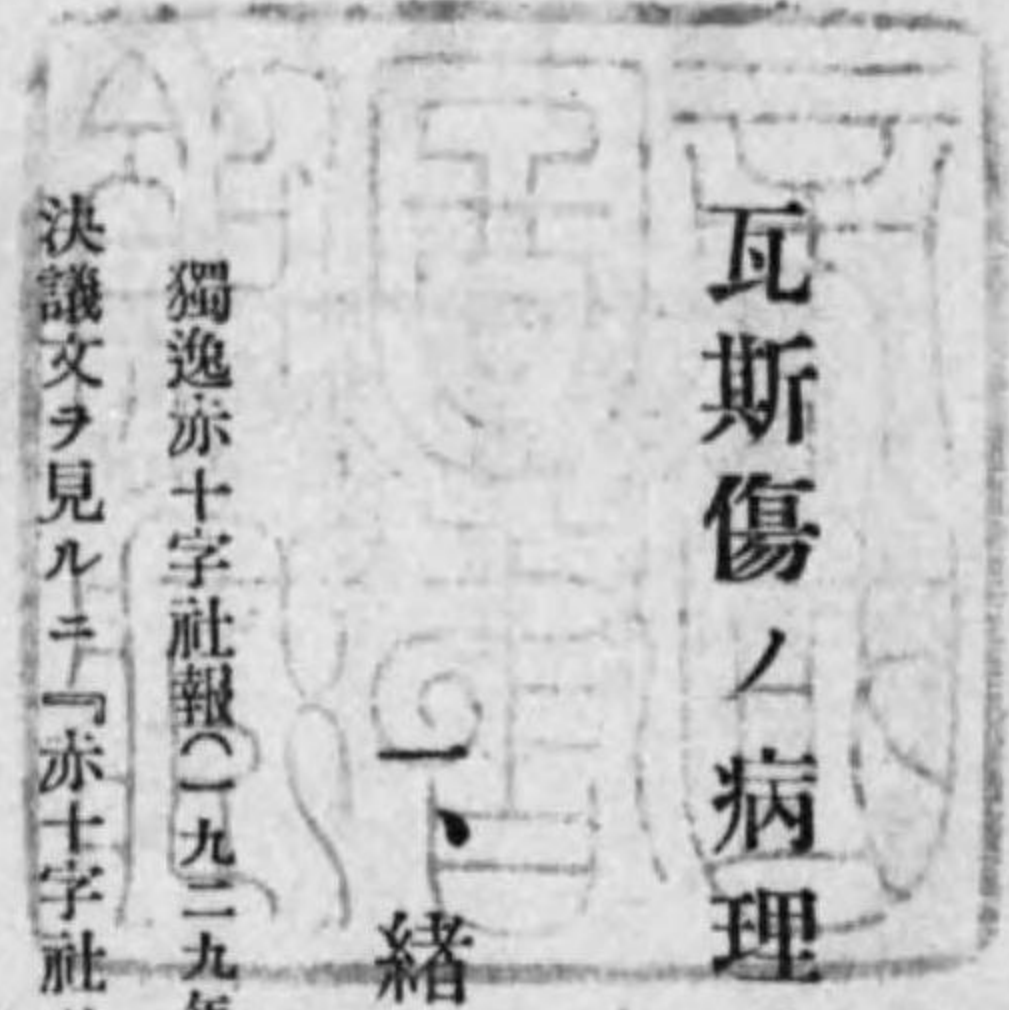 瓦斯傷ノ病理
一、緒
獨逸赤十字社報(一九二九年
決議文ヲ見ルニ『赤十字社